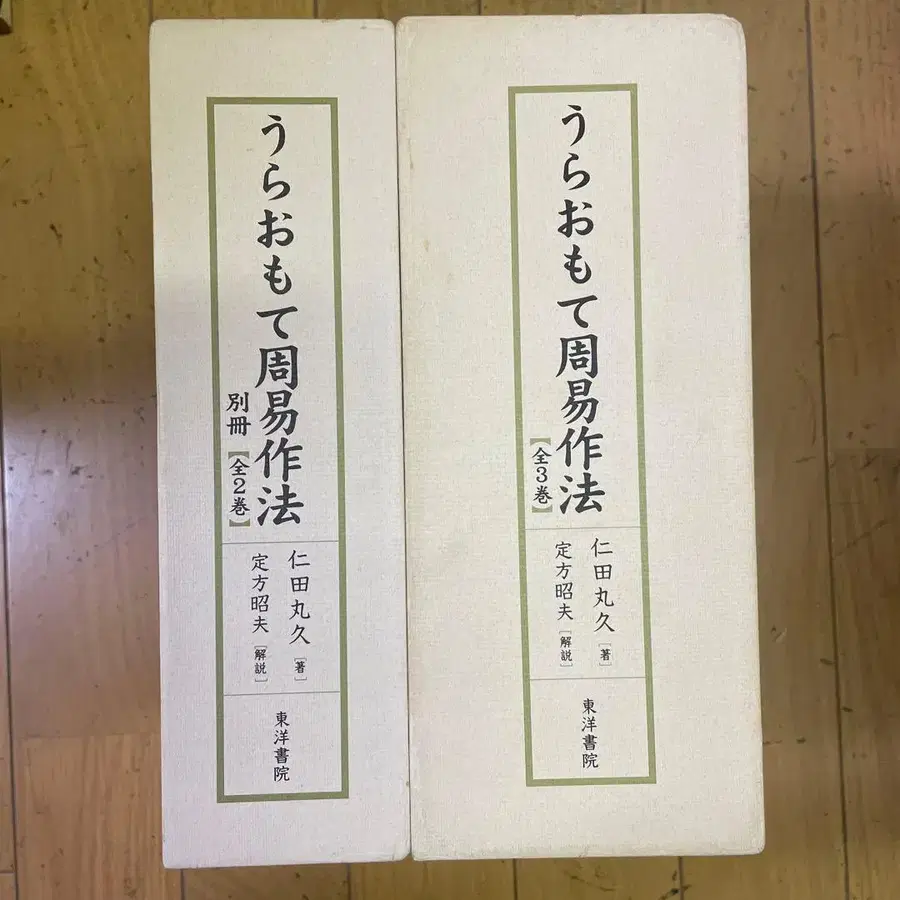 うらおもて周易作法
別冊【全2巻】
仁田丸久［著］
定方昭夫［解説］
東洋書院
うらおもて周易作法
【全3巻】
仁田丸久［著］
定方昭夫［解説］
東洋書院